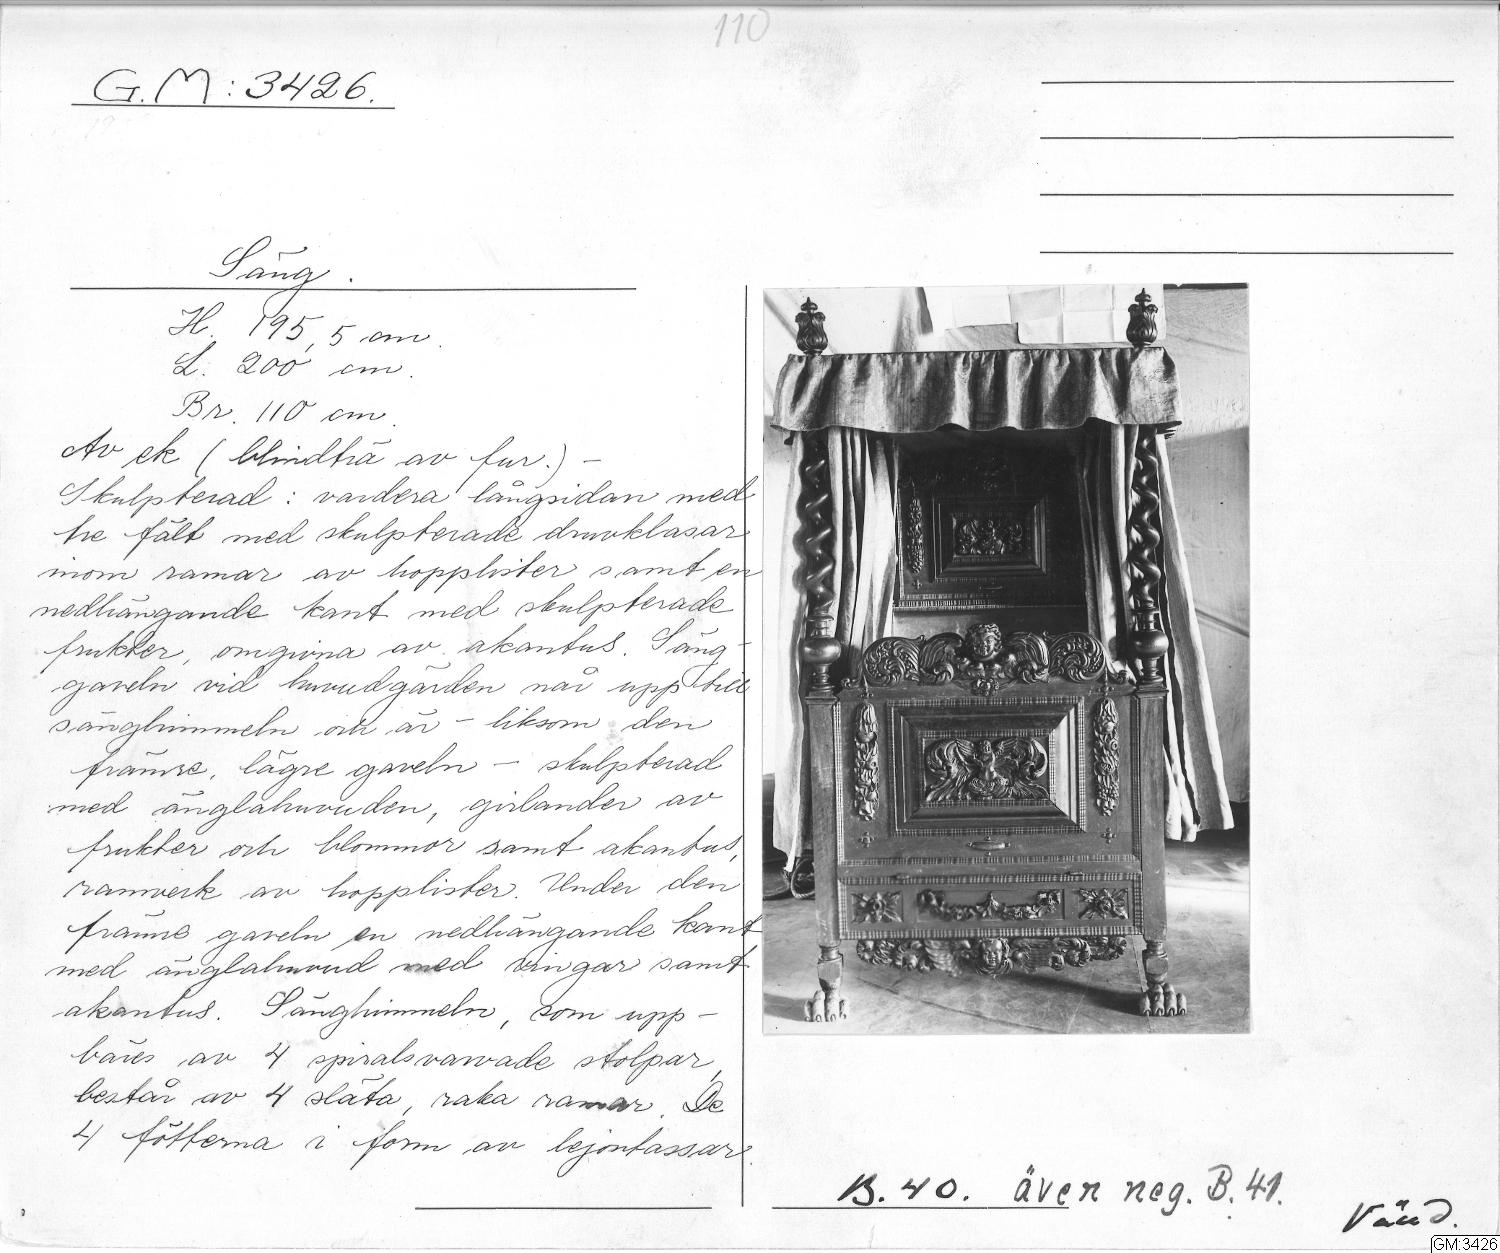 110
G.M:3426.
Säng.
H. 195,5 cm.
L. 200 cm.
Br. 110 cm.
Av ek (blindträ av fur.) –
Skulpterad: vardera långsidan med
tre fält med skulpterade druvklasar
inom ramar av hopplister samt en
nedhängande kant med skulpterade
frukter, omgivna av akantus. Säng-
gaveln vid huvudgärden når upp till
sänghimmeln och är – liksom den
främre, lägre gaveln – skulpterad
med änglahuvuden, girlander av
frukter och blommor samt akantus,
ramverk av hopplister. Under den
främre gaveln en nedhängande kant
med änglahuvud med vingar samt
akantus. Sänghimmeln, som upp-
bäres av 4 spiralsvarvade stolpar,
består av 4 släta, raka ramar. De
4 fötterna i form av lejontassar.
B.40. även neg. B.41.
Vänd.
GM:3426